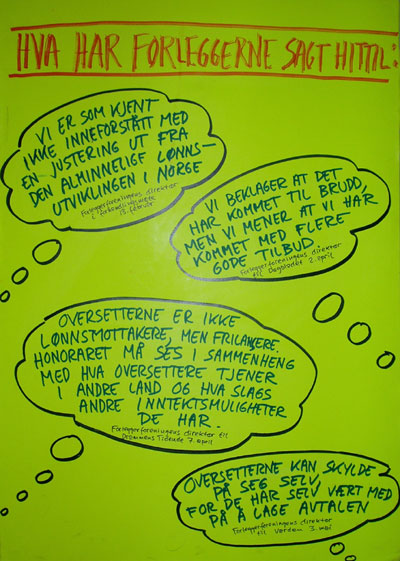 HVA HAR FORLEGGERNE SAGT HITTIL:
VI ER SOM KJENT
IKKE INNEFORSTÅTT MED
EN JUSTERING UT FRA
DEN ALMINNELIGE LØNNS-
UTVIKLINGEN I NORGE
Forleggerforeningens direktør
i forhandlingsmøte
15. februar
VI BEKLAGER AT DET
HAR KOMMET TIL BRUDD,
MEN VI MENER AT VI HAR
KOMMET MED FLERE
GODE TILBUD
Forleggerforeningens direktør
til Dagbladet 2. april
OVERSETTERNE ER IKKE
LØNNSMOTTAKERE, MEN FRILANSERE.
HONORARET MÅ SES I SAMMENHENG
MED HVA OVERSETTERE TJENER
I ANDRE LAND OG HVA SLAGS
ANDRE INNTEKTSMULIGHETER
DE HAR.
Forleggerforeningens direktør til
Drammens Tidende 7. april
OVERSETTERNE KAN SKYLDE
PÅ SEG SELV,
FOR DE HAR SELV VÆRT MED
PÅ Å LAGE AVTALEN
Forleggerforeningens direktør
til Verden 3. mai